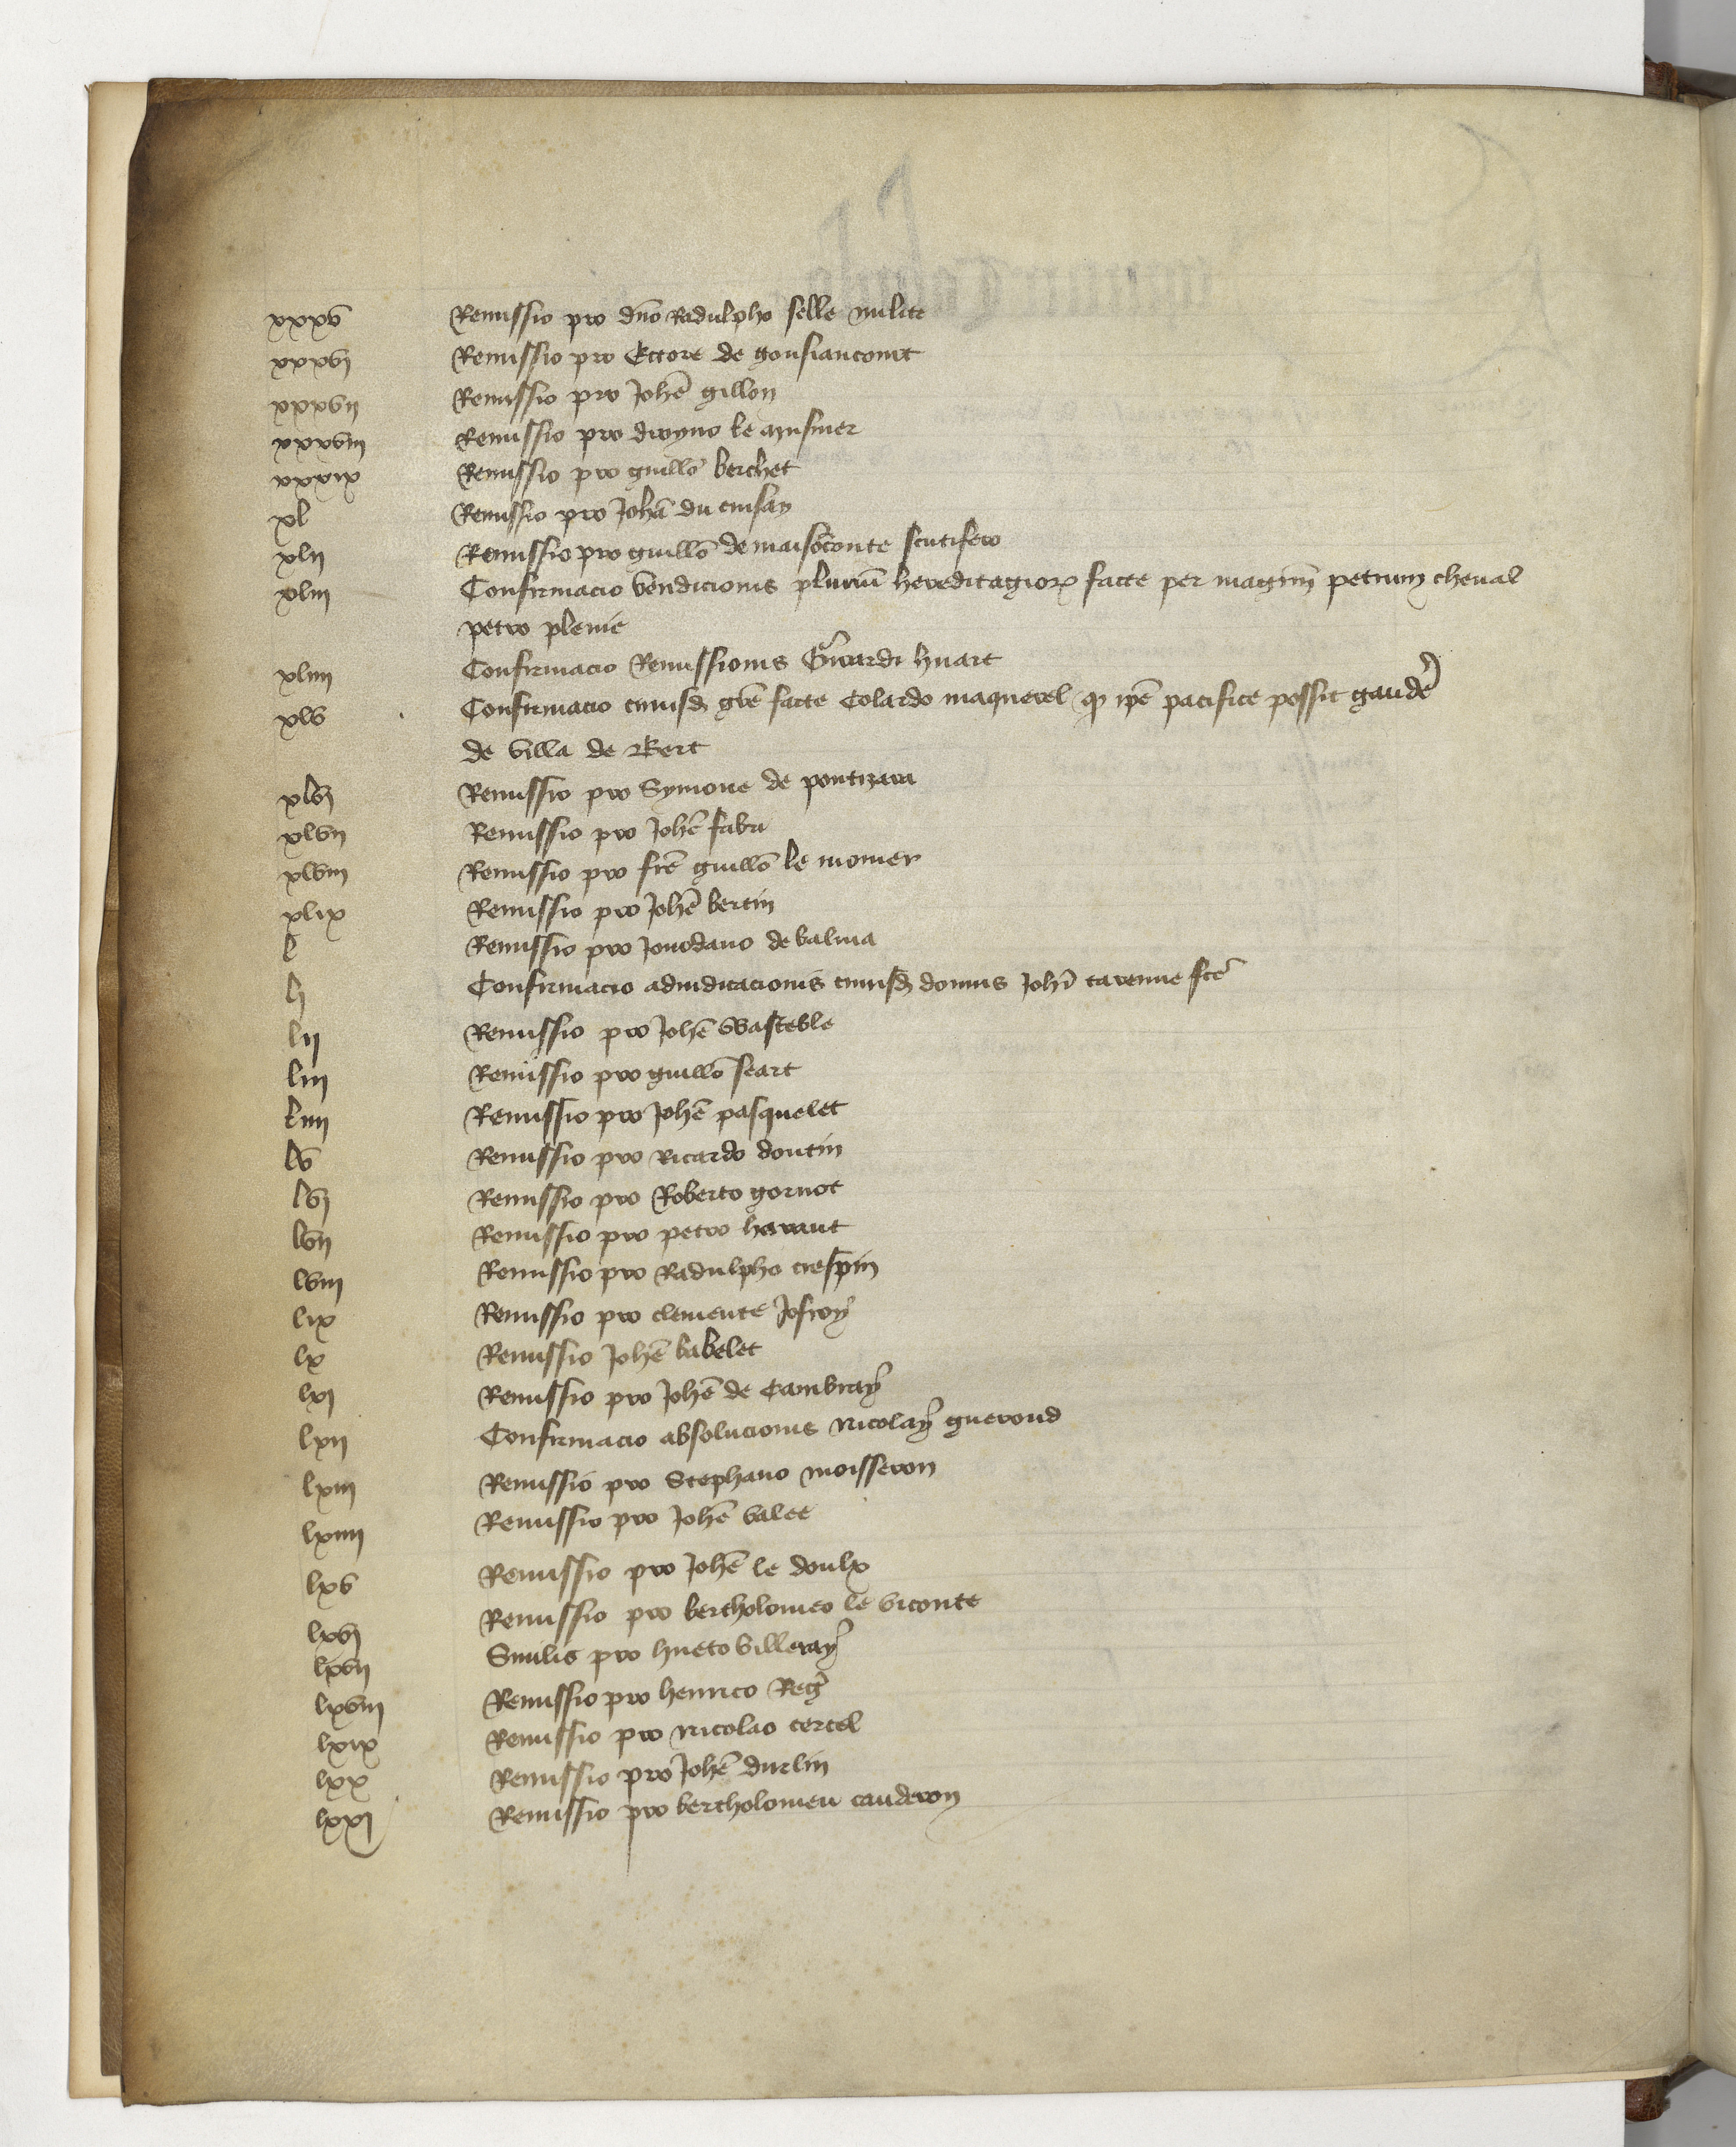 xxxv Remissio pro dno Radulpho selle milite
xxxvj Remissio pro Ectore de gousiancourt
xxxvij Remissio pro Johe gillon
xxxviij Remissio pro droyno le
xxxix Remissio pro guillo berchet
xl Remissio pro Joha du cuisay
xlij Remissio pro guillo de maisoconte scutifero
xliij Confirmacio vendicionis pluriu hereditagior facte per magrm petrum cheval
petro plenie
xliiij Confirmacio Remissionis Girardi huart
xlv Confirmacio cuiusd gre facte Colardo maquerel q ipe pacifice possit gaude
de villa de Bert
xlvj Remissio pro Symone de pontizara
xlvij Remissio pro Johe fabri
xlviij Remissio pro fre guillo le monier
xlix Remissio pro Johe bertin
l Remissio pro Jourdano de balma
lj Confirmacio adiudicacionis cuiusd domus Johi tarenne fce
lij Remissio pro Johe Wasteble
liij Remissio pro guillo seart
liiij Remissio pro Johe pasquelet
lv Remissio pro Ricardo doutin
lvj Remissio pro Roberto gornot
lvij Remissio pro petro havart
lviij Remissio pro Radulpho crespin
lix Remissio pro clemente Jofroy
lx Remissio Johe babelet
lxj Remissio pro Johe de Cambray
lxij Confirmacio absolucionis Nicolay gueroud
lxiij Remissio pro Stephano moisseron
lxiiij Remissio pro Johe valet
lxv Remissio pro Johe le doulx
lxvj Remissio pro bertholomeo le viconte
lxvij Similis pro hueto villeray
lxviij Remissio pro henrico Reg
lxix Remissio pro Nicolao tercel
lxx Remissio pro Johe durlin
lxxj Remissio pro bertholomeu cauderon